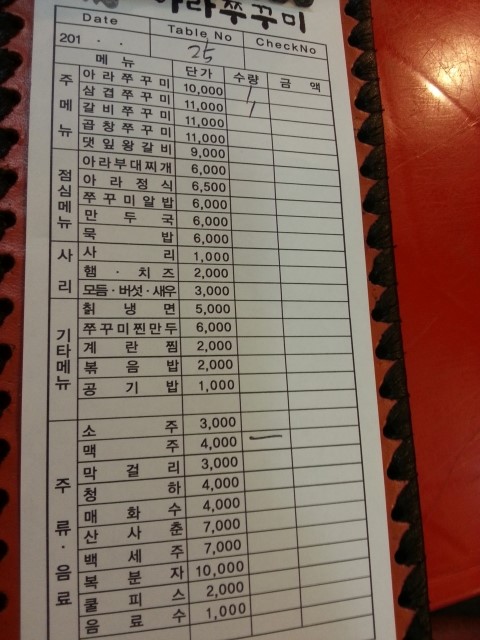 아라쭈꾸미
Date Table No CheckNo
201 . . 25
메뉴 단가 수량 금액
주메뉴
아라쭈꾸미 10,000 /
삼겹쭈꾸미 11,000 /
갈비쭈꾸미 11,000
곱창쭈꾸미 11,000
댓잎왕갈비 9,000
점심메뉴
아라부대찌개 6,000
아라정식 6,500
쭈꾸미알밥 6,000
만두국 6,000
묵밥 6,000
사리
사리 1,000
햄·치즈 2,000
모듬·버섯·새우 3,000
기타메뉴
칡냉면 5,000
쭈꾸미찐만두 6,000
계란찜 2,000
볶음밥 2,000
공기밥 1,000
주류·음료
소주 3,000
맥주 4,000 —
막걸리 3,000
청하 4,000
매화수 4,000
산사춘 7,000
백세주 7,000
복분자 10,000
쿨피스 2,000
음료수 1,000